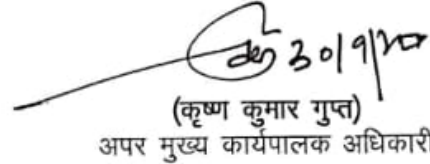 30/9/20
(कृष्ण कुमार गुप्त)
अपर मुख्य कार्यपालक अधिकारी